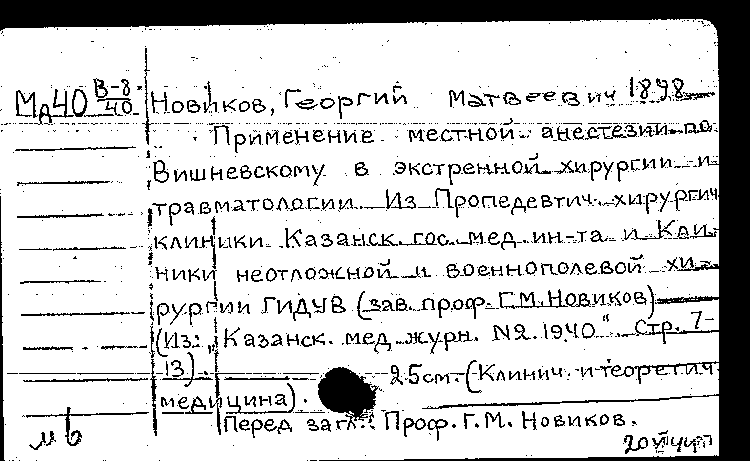 Мд40 В-8/40 Новиков, Георгий Матвеевич 1898
Применение местной анестезии по
Вишневскому в экстренной хирургии и
травматологии. Из Пропедевтич. хирургич
клиники Казанск. гос. мед. ин-та и Кли-
ники неотложной и военнополевой хи-
рургии ГИДУВ (зав. проф. Г.М. Новиков)
(Из: „Казанск. мед. журн. №2. 1940". Стр. 7-
13).
25 см. (Клинич. и теоретич
медицина).
Перед загл.: Проф. Г.М. Новиков.